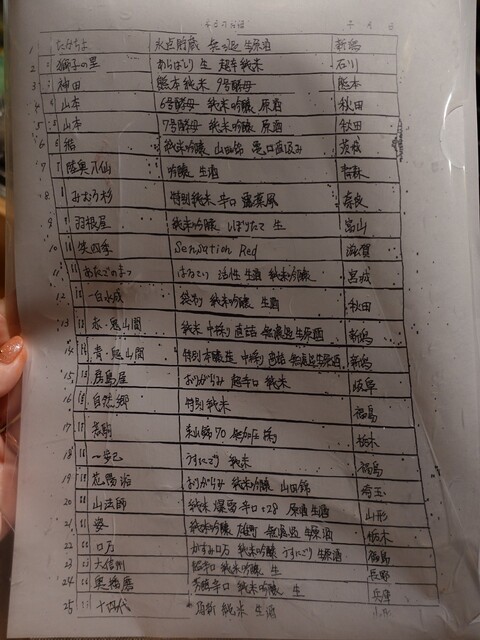 1 たかちよ 氷点貯蔵 生原酒 新潟
2 獅子の里 あらばしり 生 超辛純米 石川
3 神田 熊本純米 9号酵母 熊本
4 山本 6号酵母 純米吟醸 原酒 秋田
5 山本 7号酵母 純米吟醸 原酒 秋田
6 結 純米吟醸 山田錦 亀口直汲み 茨城
7 陸奥八仙 吟醸 生酒 青森
8 みむろ杉 特別純米 辛口 露葉風 奈良
9 羽根屋 純米吟醸 しぼりたて 生 富山
10 笑四季 Sensation Red 滋賀
11 あたごのまつ はるこい 活性生酒 純米吟醸 宮城
12 一白水成 純米吟醸 生酒 秋田
13 赤・鬼山間 純米 中採り直詰 無濾過生原酒 新潟
14 青・鬼山間 特別本醸造 中採り直詰 無濾過生原酒 新潟
15 房島屋 おりがらみ 超辛口 純米 岐阜
16 自然郷 特別純米 福島
17 若駒 70 無加圧採り 栃木
18 一歩己 うすにごり 純米 福島
19 花陽浴 おりがらみ 純米吟醸 山田錦 埼玉
20 山法師 純米 爆雷辛口 +28 原酒 生酒 山形
21 姿 純米吟醸 雄町 無濾過生原酒 栃木
22 ロ万 かすみロ万 純米吟醸 うすにごり 生原酒 福島
23 大信州 超辛口 純米吟醸 生 長野
24 奥播磨 辛口 純米吟醸 生 兵庫
25 十四代 純米 生酒